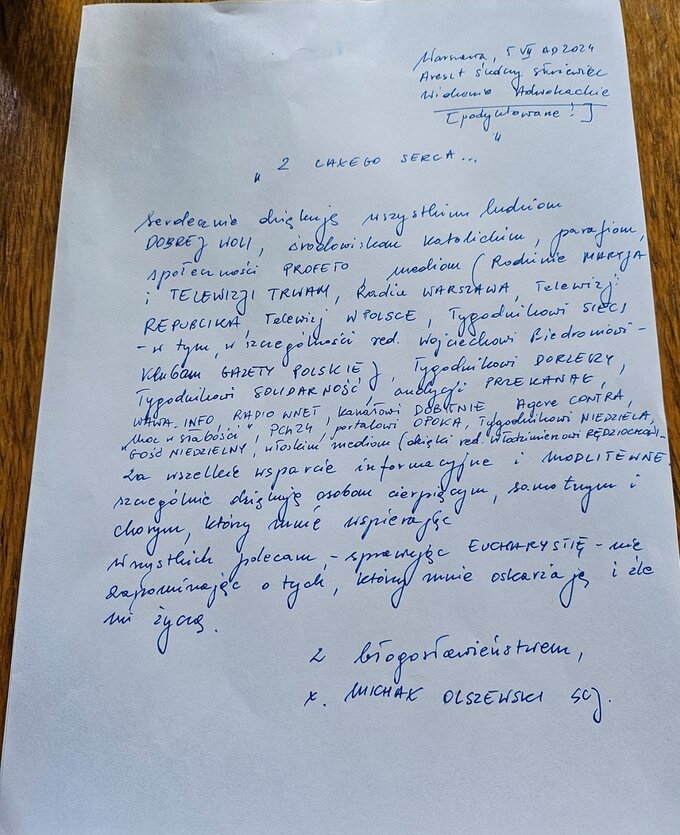 Warszawa, 5 VII AD 2024
Areszt Śledczy Służewiec
Widzenie Adwokackie
[podyktowane!]
"
" Z CAŁEGO SERCA...
Serdecznie dziękuję wszystkim ludziom
DOBREJ WOLI, środowiskom katolickim, parafiom,
społeczności PROFETO, mediom (Rodzinie MARYJA
i TELEWIZJI TRWAM, Radiu WARSZAWA, Telewizji
REPUBLIKA, Telewizji WPOLSCE, Tygodnikowi SIECI
- w tym, w szczególności red. Wojciechowi Biedroniowi -
Klubom GAZETY POLSKIEJ, Tygodnikowi DORZECZY,
Tygodnikowi SOLIDARNOŚĆ, audycji PRZEKANAŁ,
WAWA.INFO, RADIO WNET, kanałowi DOBITNIE Agere CONTRA,
"Moc w słabości", PCh24, portalowi OPOKA, Tygodnikowi NIEDZIELA,
GOŚĆ NIEDZIELNY, włoskim mediom (dzięki red. Włodzimierzowi RĘDZIOCHOWI-
Za wszelkie wsparcie informacyjne i MODLITEWNE.
szczególnie dziękuję osobom cierpiącym, samotnym i
chorym, którzy mnie wspierają
Wszystkich polecam, - sprawując EUCHARYSTIĘ - nie
zapominając o tych, którzy mnie oskarżają i źle
mi życzą.
Z błogosławieństwem,
x. MICHAŁ OLSZEWSKI SCJ.